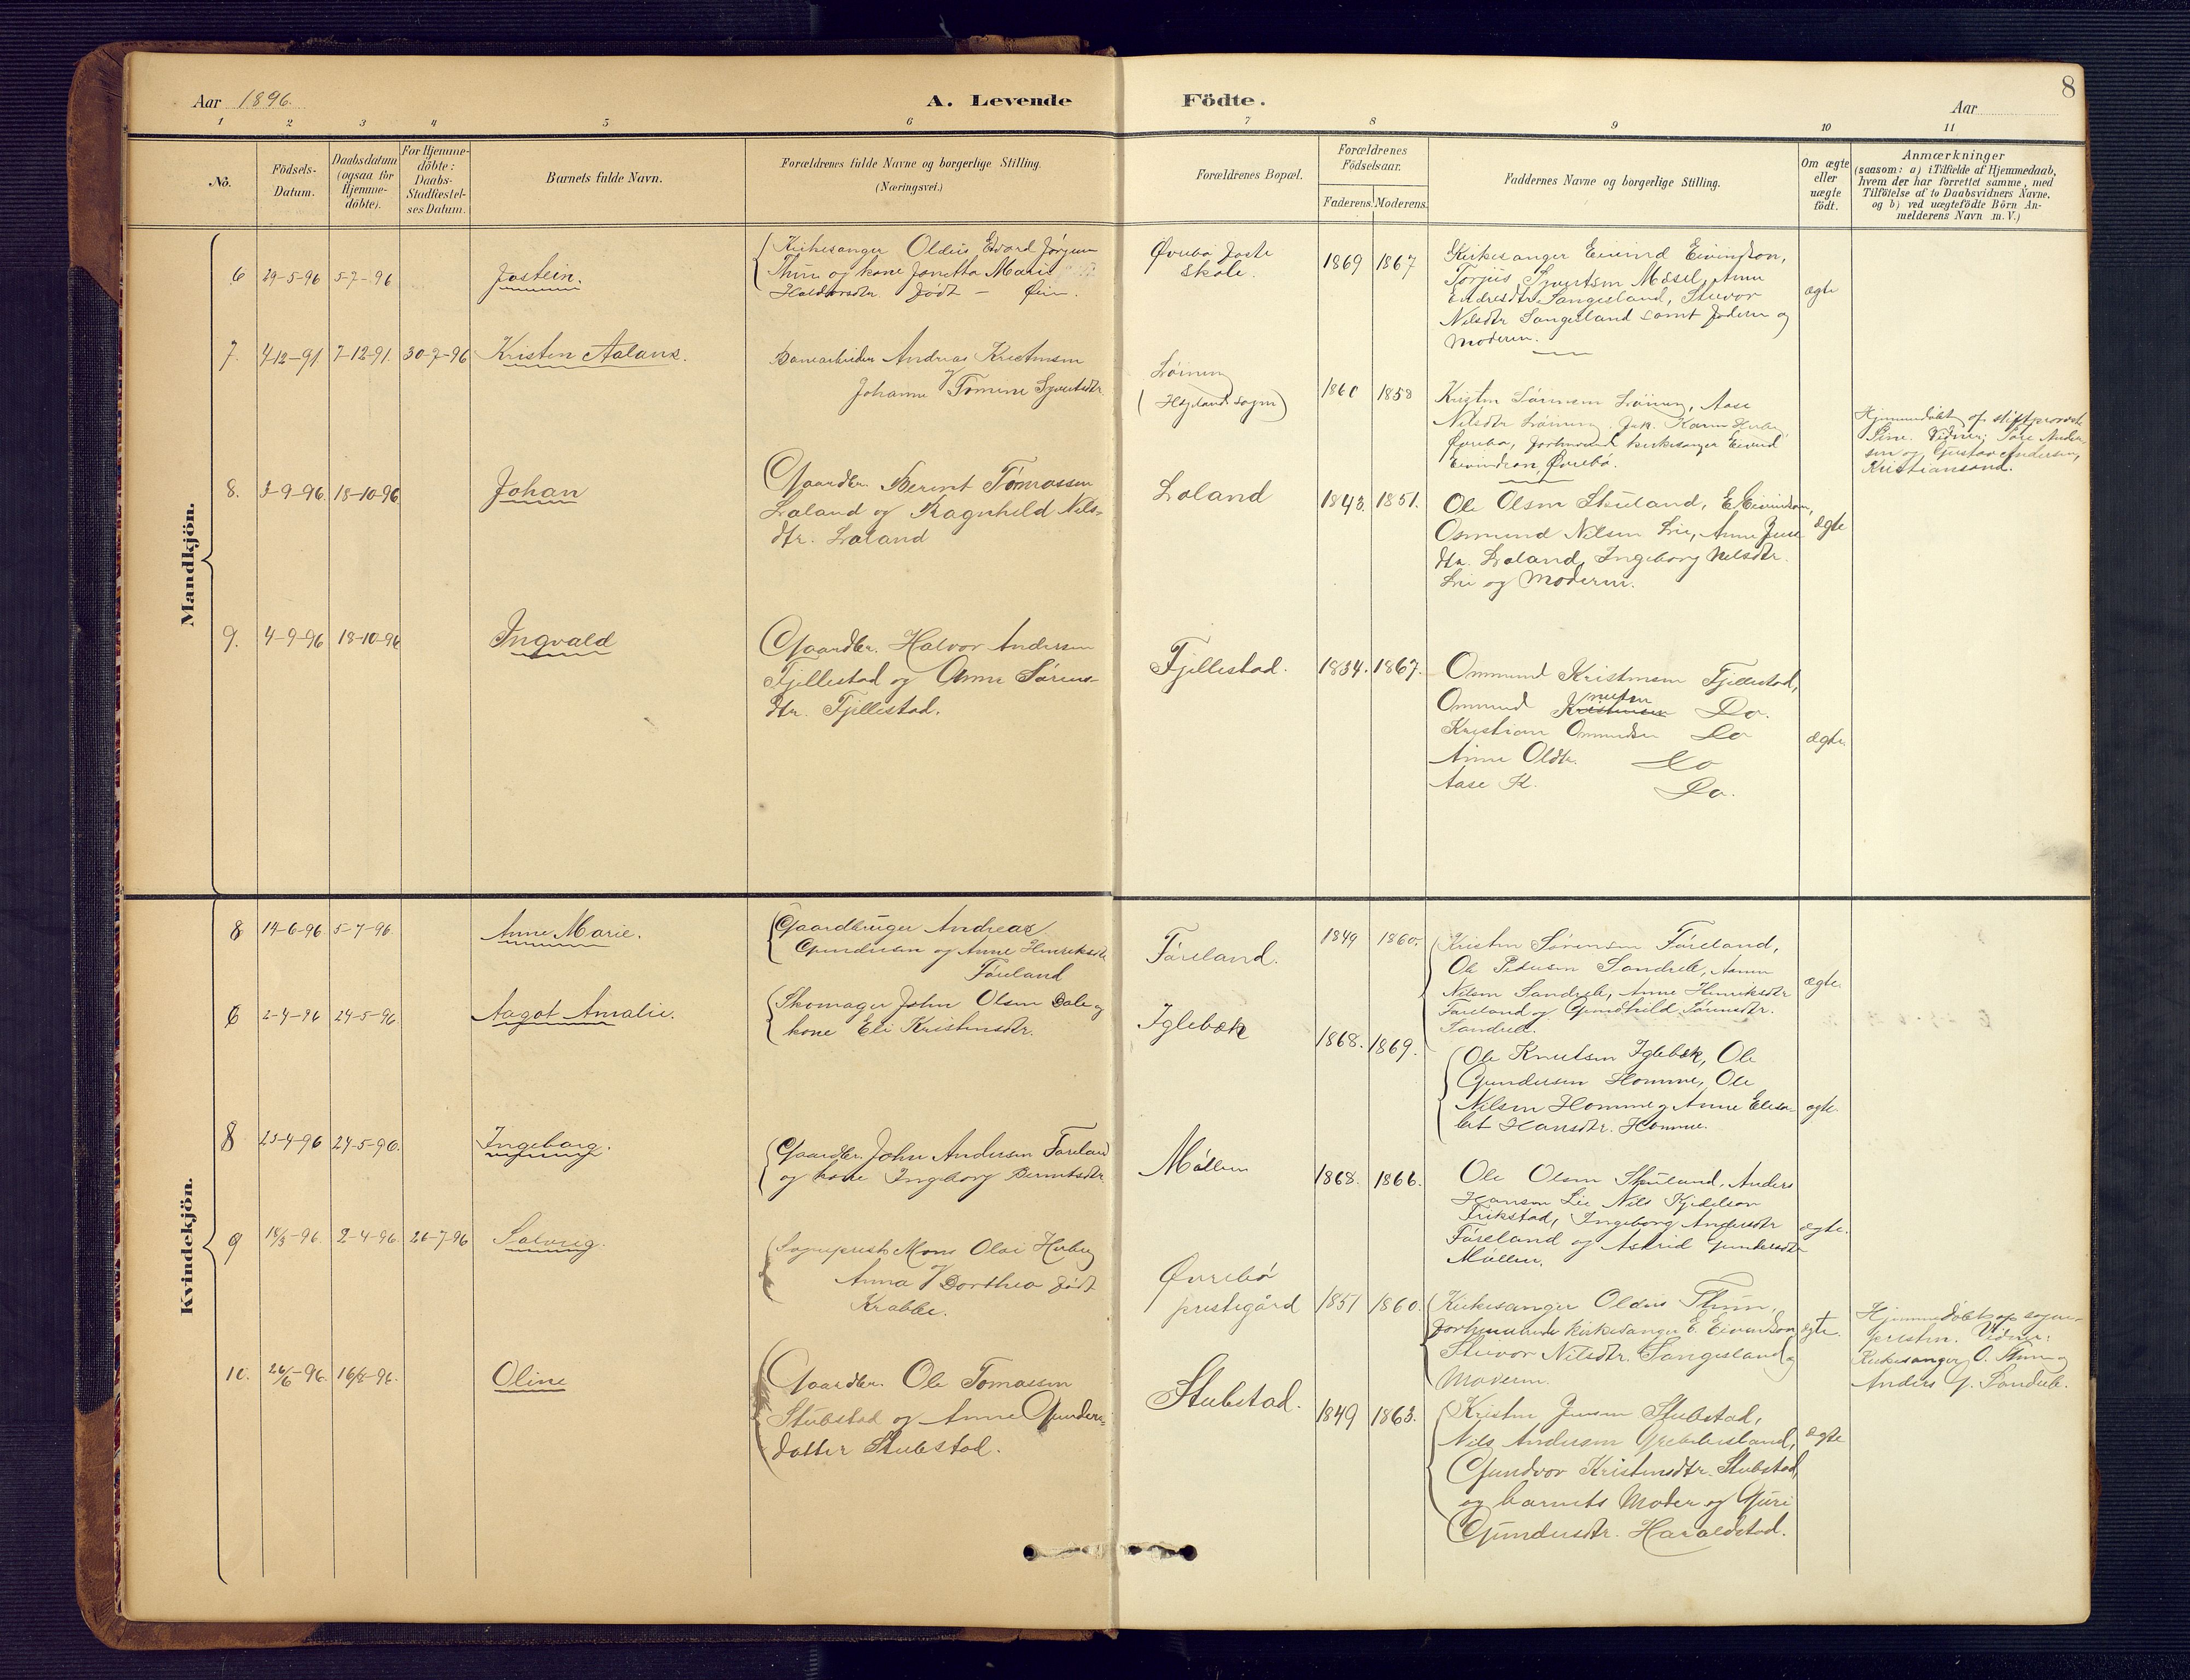 Aar 1896.
A. Levende
Födte.
Aar
8
1 2 3 4 5 6 7 8 9 10 11
No.
Födsels-
Datum.
Daabsdatum
(ogsaa for
Hjemme-
döbte).
For Hjemme-
döbte:
Daabs-
Stadfæstel-
ses Datum.
Barnets fulde Navn.
Forældrenes fulde Navne og borgerlige Stilling.
(Næringsvei.)
Forældrenes Bopæl.
Forældrenes
Födselsaar.
Faderens. Moderens.
Faddernes Navne og borgerlige Stilling.
Om ægte
eller
uægte
födt.
Anmærkninger
(saasom: a) i Tilfælde af Hjemmedaab,
hvem der har forrettet samme, med
Tilföielse af to Daabsvidners Navne,
og b) ved uægtefödte Börn An-
melderens Navn m. V.)
Mandkjön.
6 29-5-96 5-7-96 Jostein.
Kirkesanger Oldus Edvard Jörgensen
Thun og kone Jonetta Marie
Haldorsdtr. födt – Öien.
Øvrebø faste
skole.
1869 1867
Kirkesanger Eivind Eivindson,
Torjus Syvertsen Mosel, Anne
Endresdtr. Sangesland, Stuvor
Nilsdtr Sangesland samt faderen og
Moderen.
ægte
7. 4-12-91 7-12-91. 30-7-96 Kristen Aalans.
Banearbeider Andreas Kristensen
Johanne Tomine Syvertsdtr.
(Hægelands sogn)
1860 1858
Kristen Sörensen Aase
Nilsdtr
Øvrebø, forhenværende kirkesanger Eivind
Eivindson, Øvrebø.
Hjemmedöbt af stiftsprovst
Vidner: Andersen og Gustav Andersen,
Kristiansand.
8. 3-9-96. 18-10-96 Johan
Gaardbr. Berint Tomassen
Loland og Ragnhild Nils-
dtr. Loland
Loland
1843. 1851.
Ole Olsen Stuland, E. Eivindson,
Osmund Nilsen Lie, Anne Jens-
dtr. Loland, Ingeborg Nilsdtr.
Lie og Moderen.
ægte
9. 4-9-96 18-10-96 Ingvald
Gaardbr. Halvor Andersen
Fjellestad og Anne Sörens-
dtr. Fjellestad.
Fjellestad.
1834. 1867.
Ommund Kristensen Fjellestad,
Ommund Knutsen Do.
Kristian Ommundsen Do
Anne Oldtr. Do
Aase K. Do.
ægte.
Kvindekjön.
8 14-6-96. 5-7-96. Anne Marie.
Gaardbruger Andreas
Gundersen og Anne Henriksdtr.
Föreland
Föreland.
1849 1860.
Kristen Sörensen Föreland,
Ole Pedersen Sandrib,
Nilsen Sandrib, Anne Henriksdtr
Föreland og Gundhild Sörensdtr.
Sandrib.
ægte.
6 2-4-96 24-5-96. Aagot Amalie.
Skomager John Olsen Dale og
kone Eli Kristensdtr.
Iglebæk
1868. 1869.
Ole Knutsen Iglebæk, Ole
Gundersen Homme, Ole
Nilsen Homme og Anne Elisa-
bet Hansdtr. Homme.
ægte.
8 23-4-96 24-5-96. Ingeborg.
Gaardbr. John Andersen Föreland
og kone Ingeborg Berntsdtr.
Möllen
1868. 1866.
Ole Olsen Stuland, Anders
Hansen Lie Nils Kjedelson
Frikstad, Ingeborg Andersdtr
Föreland og Astrid Gundersdtr
Möllen.
ægte.
9 18/3-96. 2-4-96. 26-7-96 Solveig.
Sogneprest Mons Olai
Anna Dorthea födt
Krabbe.
Øvrebø
prestegård
1851 1860.
Kirkesanger Oldus Thun,
forhenværende kirkesanger E. Eivindson,
Stuvor Nilsdtr. Sangesland og
Moderen.
ægte.
Hjemmedöbt af sogne-
presten. Vidner:
Kirkesanger O. Thun og
Anders G. Sandrib.
10. 26/6-96. 16/8-96. Oline
Gaardbr. Ole Tomassen
Stubstad og Anne Gunders-
datter Stubstad.
Stubstad.
1849 1863.
Kristen Jensen Stubstad,
Nils Andersen Grebbesland,
Gundvor Kristensdtr. Stubstad,
og barnets Moder og Guri
Gundersdtr. Haraldstad.
ægte